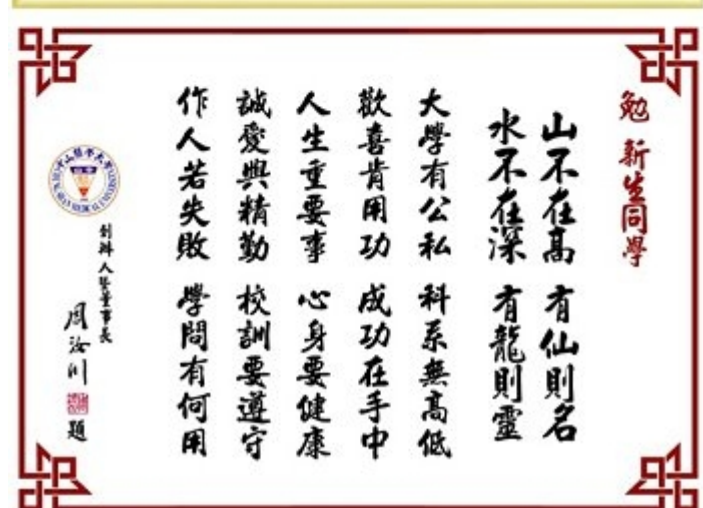 勉 新生同學
山不在高 有仙則名
水不在深 有龍則靈
大學有公私 科系無高低
歡喜肯用功 成功在手中
人生重要事 心身要健康
誠愛與精勤 校訓要遵守
作人若失敗 學問有何用
創辦人暨董事長
周汝川 題
中山醫學大學